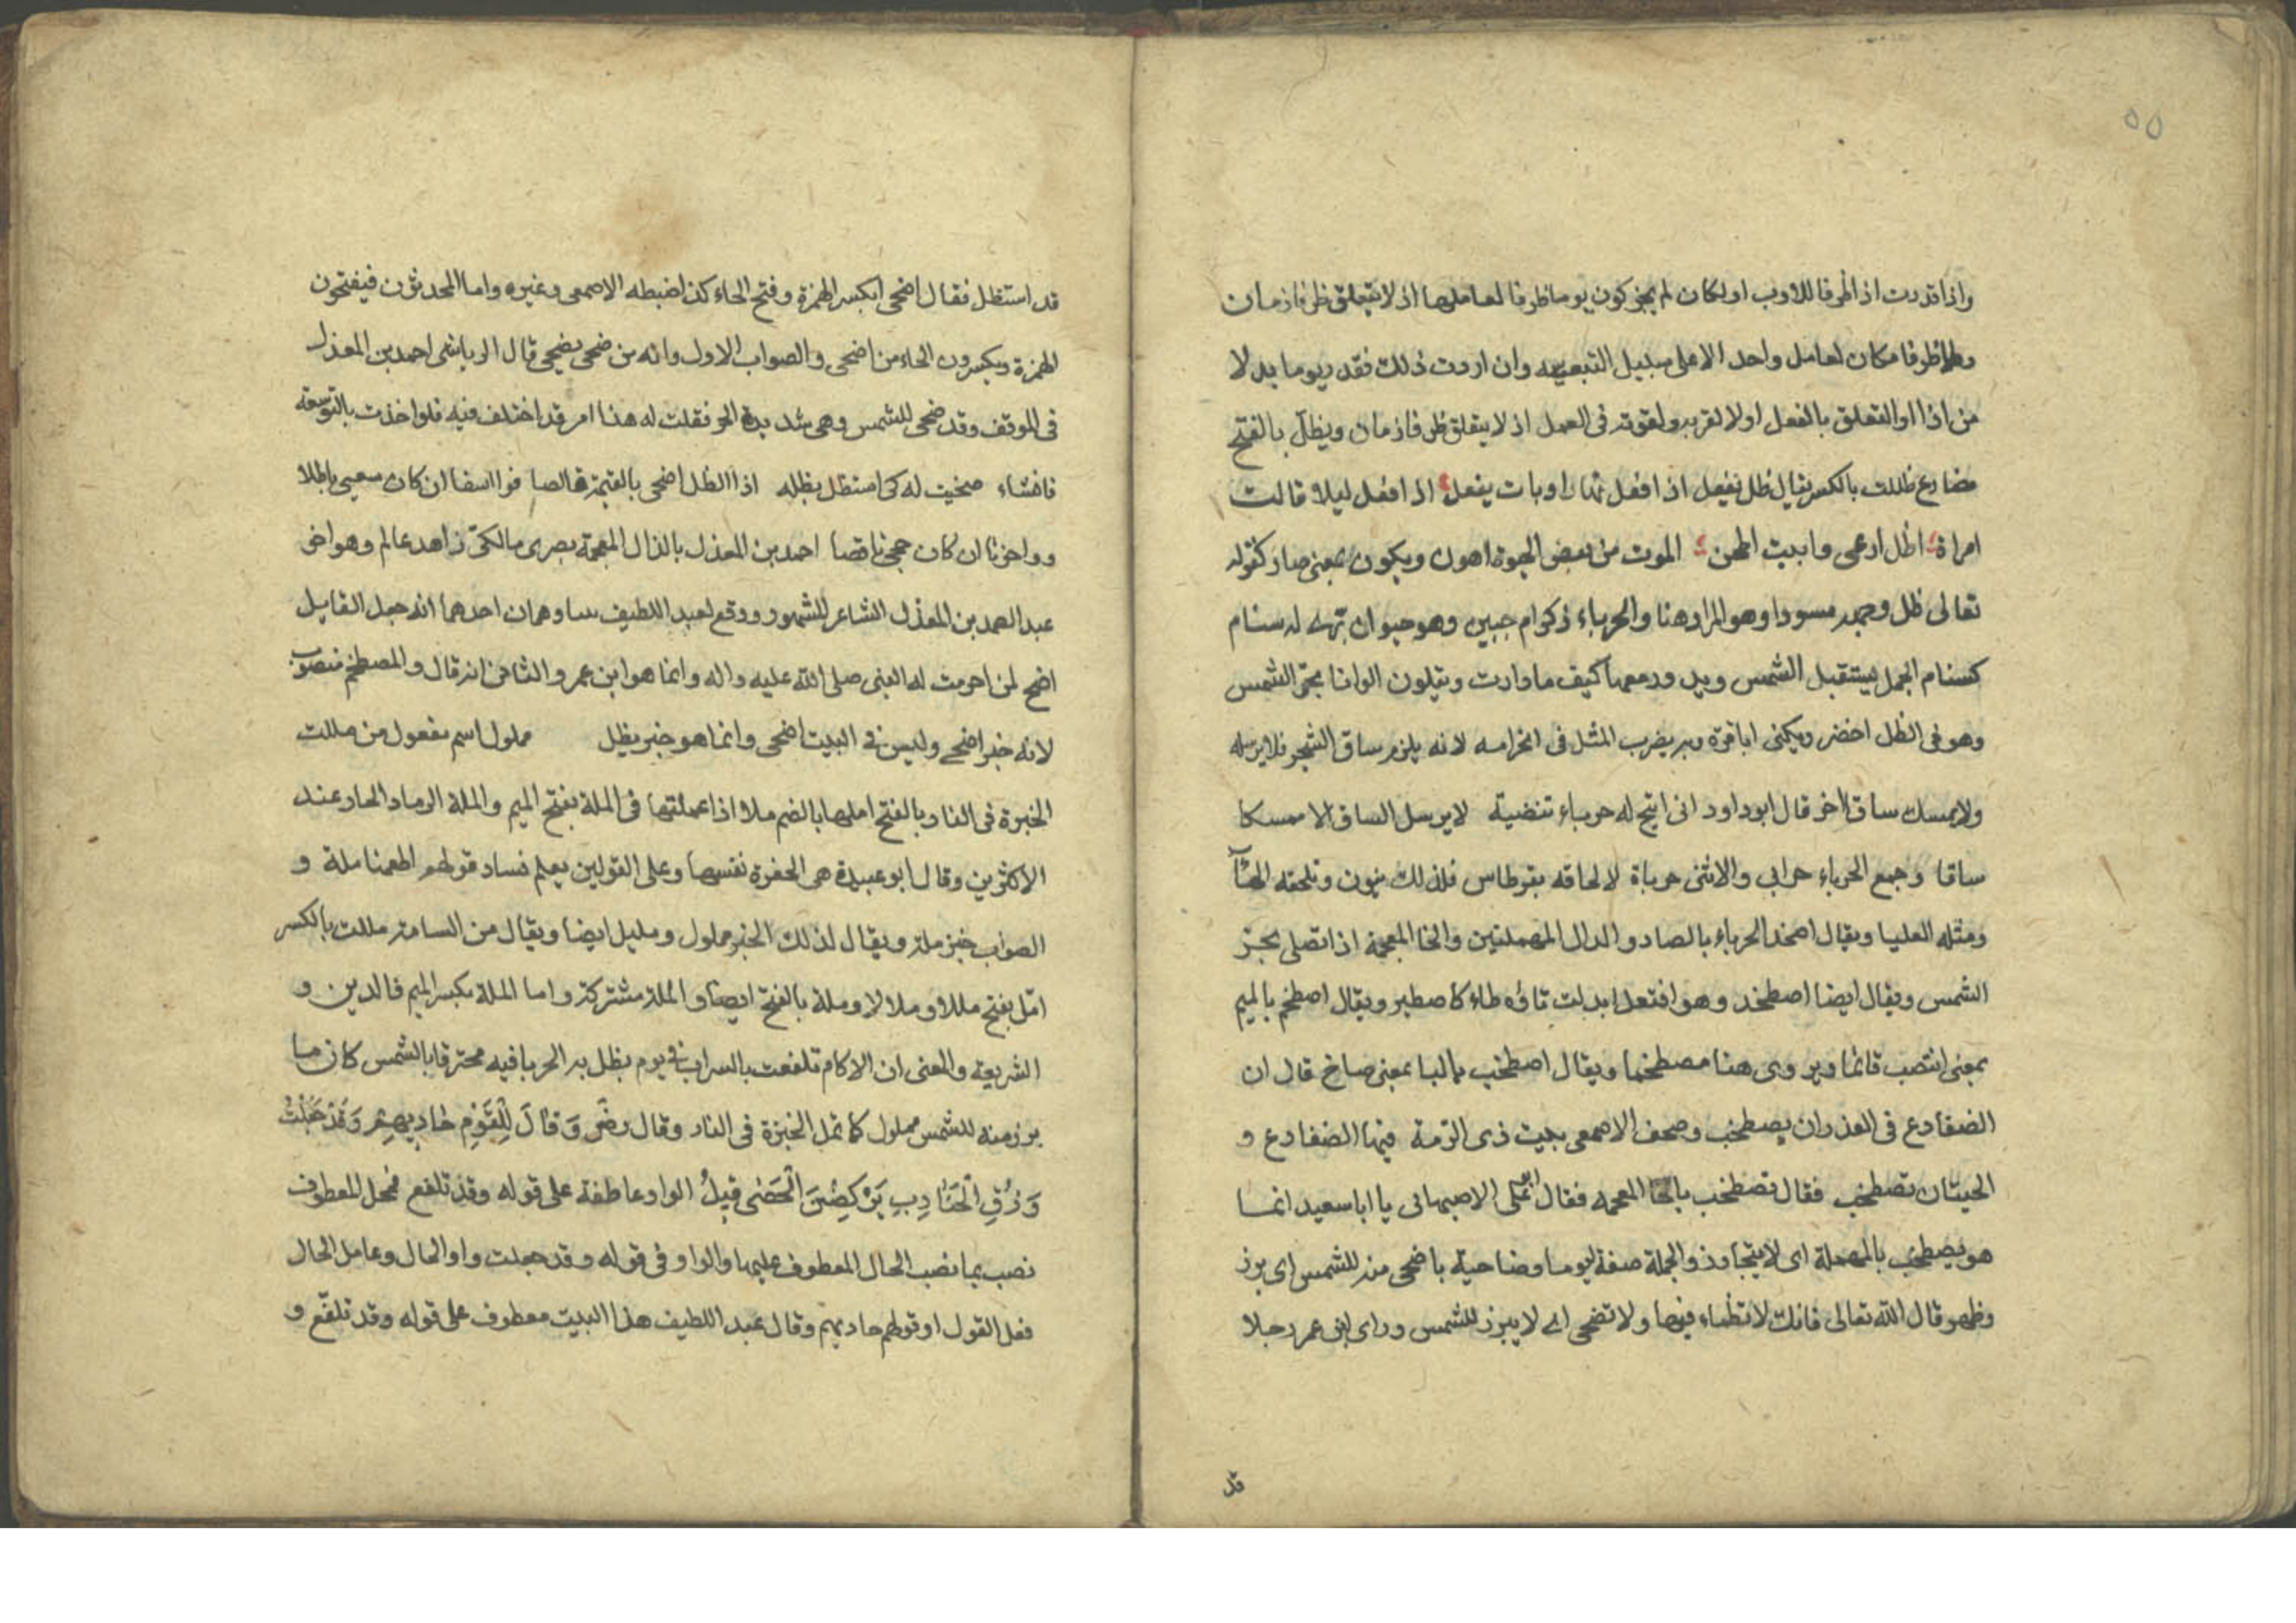 ٥٥
واذا قدرت اذا ظرفا للاوب او لكان لم يجز كون يوما ظرفا لعاملها اذ لا يتعلق ظرفا زمان
وظرفا مكان لعامل واحد الا على سبيل التبعيه وان اردت ذلك فقدر يوما بدلا
من اذا او التعلق بالفعل اولا لقربه ولقوته فى العمل اذ لا يتعلق ظرفا زمان ويظل بالفتح
مضارع ظللت بالكسر يقال ظل يفعل اذا فعل نهارا وبات يفعل اذا فعل ليلا قالت
امراة اظل ارعى وابيت اطحن الموت من بعض الحيوة اهون ويكون بمعنى صار كقوله
تعالى ظل وجهه مسودا وهو المراد هنا والحرباء ذكر ام حبين وهو حيوان برى له سنام
كسنام الجمل يستقبل الشمس ويدور معها كيف ما دارت ويتلون الوانا بحر الشمس
وهو فى الظل اخضر ويكنى ابا قرة وبه يضرب المثل فى الحزامه لانه يلزم ساق الشجر فلا يرسله
ولا يمسك ساق اخر قال ابو داود انى اتيح له حرباء تنضبة لا يرسل الساق الا ممسكا
ساقا وجمع الحرباء حرابى والانثى حرباة لالحاقه بقرطاس فلذلك ينون وتلحقه الهاآ
ومثله العليا ويقال اصخد الحرباء بالصاد والدال المهملتين والخا المعجمة اذا تصلى بحر
الشمس ويقال ايضا اصطخد وهو افتعل ابدلت تاؤه طاء كاصطبر ويقال اصطخم بالميم
بمعنى انتصب قائما ويروى هنا مصطخما ويقال اصطخب بالبا بمعنى صاخ قال ان
الضفادع فى الغدران يصطخب وصحف الاصمعى بيت ذى الرمة فيها الضفادع و
الحيتان تصطخب فقال تصطخب بالخا المعجمه فقال ابو على الاصبهانى يا ابا سعيد انما
هو يصطحب بالمهملة اى لا يتجاوز والجملة صفة ليوما وضاحية باضحى منه للشمس اى برز
وظهر قال الله تعالى فانك لا تظماء فيها ولا تضحى اى لا يبرز للشمس وراى ابن عمر رجلا
قد
قد استظل فقال اضحى بكسر الهمزة وفتح الحاء كذا ضبطه الاصمعى وغيره واما المحدثون فيفتحون
الهمزة ويكسرون الحاء من اضحى والصواب الاول وانه من ضحى يضحى قال الرياشى احمد بن المعذل
فى الموقف وقد ضحى للشمس وهى شديدة الحر فقلت له هذا امر قد اختلف فيه فلو اخذت بالتوسعة
فانشاء ضحيت له كى استظل بظله اذا الظل اضحى بالقيمة قالصا فوا اسفا ان كان سعيى باطلا
ووا حزنا ان كان حجى ناقصا احمد بن المعذل بالذال المعجمة بصرى مالكى زاهد عالم وهو اخو
عبد الصمد بن المعذل الشاعر المشهور ووقع لعبد اللطيف وهمان احدهما انه جعل القايل
اضح لمن احرمت له النبى صلى الله عليه واله وانما هو ابن عمر والثانى انه قال والمصطخم منصوب
لانه خبر اضحى وليس فى البيت اضحى وانما هو خبر يظل مملول اسم مفعول من مللت
الخبزة فى النار بالفتح املها بالضم ملا اذا عملتها فى الملة بفتح الميم والملة الرماد الحار عند
الاكثرين وقال ابو عبيدة هى الحفرة نفسها وعلى القولين يعلم فساد قولهم اطعمنا ملة و
الصواب خبز ملة ويقال لذلك الخبز مملول ومليل ايضا ويقال من السامة مللت بالكسر
امل بفتح مللا وملالا وملة بالفتح ايضا والملة مشتركة واما الملة بكسر الميم فالدين و
الشريعة والمعنى ان الاكام تلفعت بالسراب فى يوم يظل به الحربا فيه محترقا بالشمس كان ما
برز منه للشمس مملول كما تمل الخبزة فى النار وقال رضى وَقَالَ لِلْقَوْمِ حَادِيهِمْ وَقَدْ جَعَلَتْ
وَرْقِ الْجَنَادِبِ يَرْكِضْنَ الْحَصٰى قِيلُ الواو عاطفة على قوله وقد تلفع فمحل المعطوف
نصب بما نصب الحال المعطوف عليها والواو فى قوله وقد جعلت واو الحال وعامل الحال
فعل القول او قولهم حاديهم وقال عبد اللطيف هذا البيت معطوف على قوله وقد تلفع و